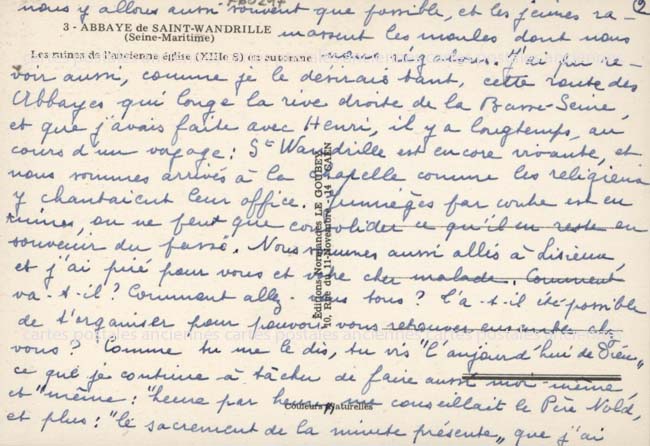 nous y allons aussi souvent que possible, et les jeunes ra-
②
3 - ABBAYE de SAINT-WANDRILLE
(Seine-Maritime)
massent les moules dont nous
Les ruines de l'ancienne église (XIIIe S)
nous régalons. J'ai pu re-
voir aussi, comme je le désirais tant, cette route des
Abbayes qui longe la rive droite de la Basse-Seine,
et que j'avais faite avec Henri, il y a longtemps, au
cours d'un voyage : St Wandrille est encore vivante, et
nous sommes arrivés à la chapelle comme les religieux
y chantaient leur office. Jumièges par contre est en
ruines, on ne peut que consolider ce qu'il en reste en
souvenir du passé. Nous sommes aussi allés à Lisieux,
et j'ai prié pour vous et votre cher malade. Comment
va-t-il ? Comment allez-vous tous ? T'a-t-il été possible
de t'organiser pour pouvoir vous retrouver ensemble chez
vous ? Comme tu me le dis, tu vis "l'aujourd'hui de Dieu",
ce que je continue à tâcher de faire aussi moi-même
et même : "heure par heure", conseillait le Père
et plus : "le sacrement de la minute présente", que j'ai
Editions Normandes LE GOUBEY
10, Rue du 11-Novembre - 14 - CAEN
Couleurs Naturelles
cartes postales anciennes cartes postales anciennes cartes postales anciennes